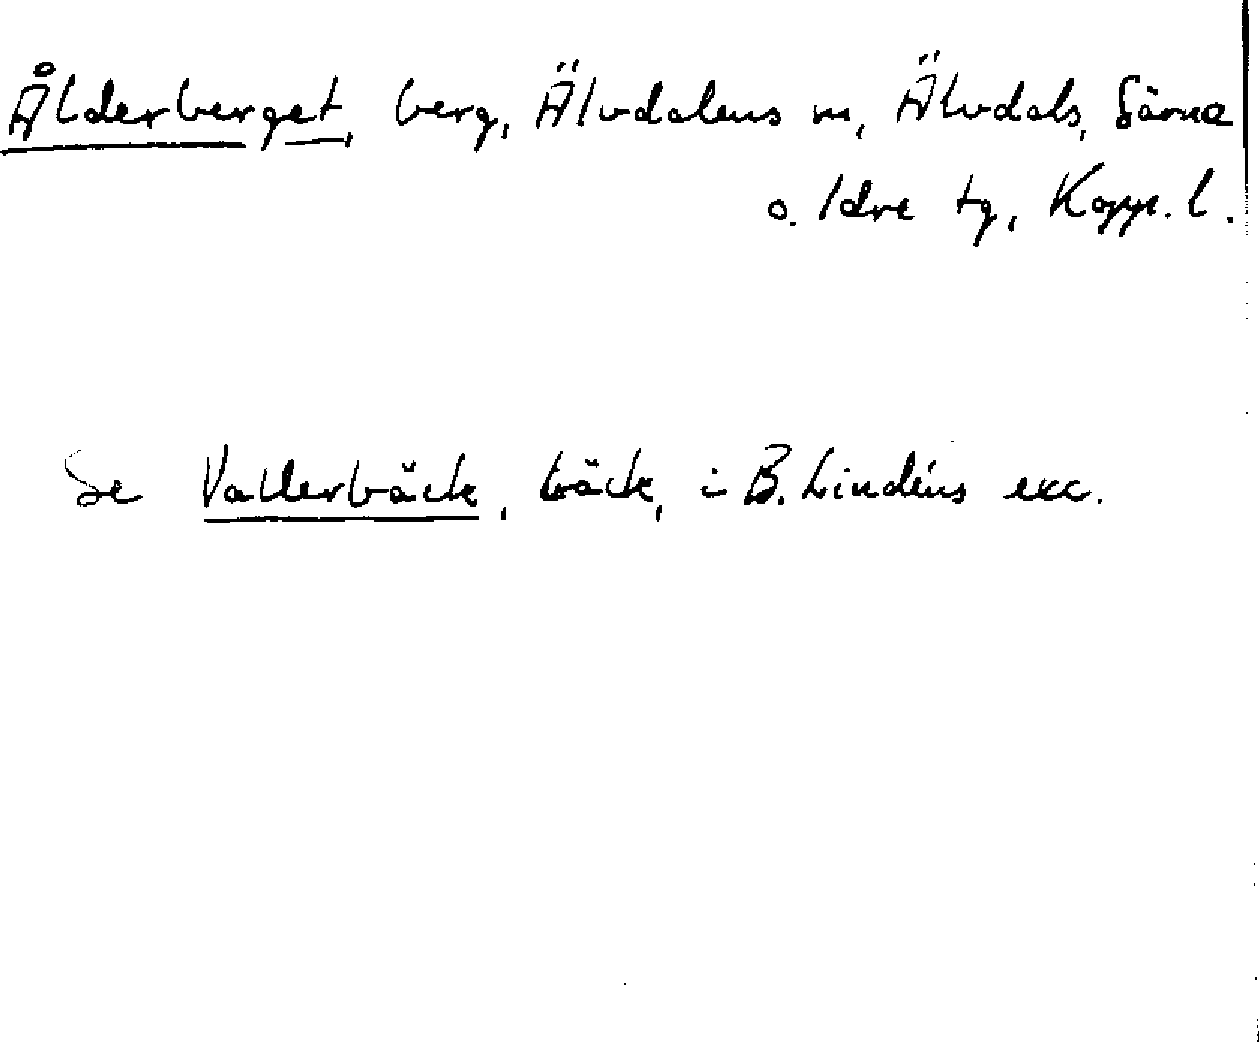 Ålderberget, berg, Älvdalens sn, Älvdals, Särna
o. Idre tg, Kopp. l.
Se Vallerbäck, bäck, i B. Lindéns exc.